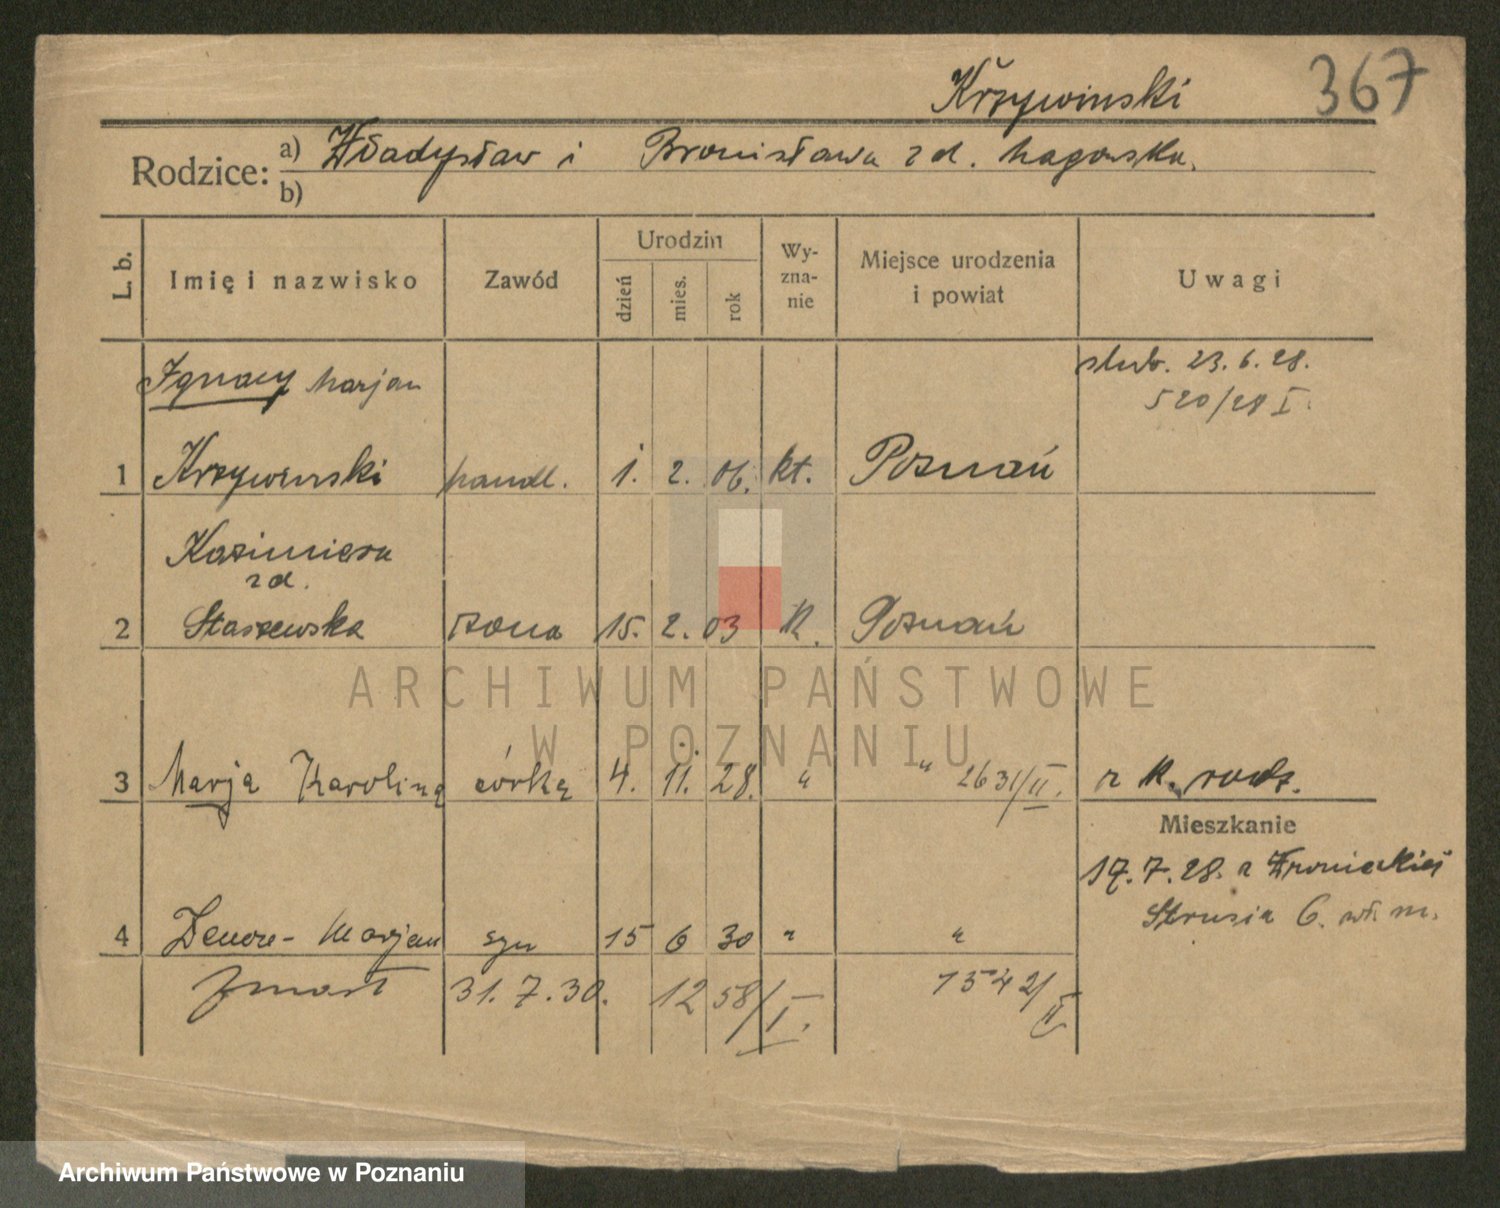 Krzywinski 367
Rodzice: a) Władysław i Bronisława zd. Nagorska.
b)
L. b. Imię i nazwisko Zawód Urodzin dzień mies. rok Wyznanie Miejsce urodzenia i powiat Uwagi
Ignacy Marjan ślub. 23.6.28.
520/28 I.
1 Krzywinski handl. 1. 2. 06. kt. Poznań
Kazimiera
zd.
2 Staszewska żona 15. 2. 03 k. Poznań
3 Marja Karolina córka 4. 11. 28. " " 2631/II. z k. rodz.
Mieszkanie
17.7.28. z Wronieckiej
Strusia 6. m.
4 Zenon-Marjan syn 15 6 30 " "
Zmarł 31.7.30. 1258/I. 1542/II
ARCHIWUM PAŃSTWOWE
W POZNANIU
Archiwum Państwowe w Poznaniu